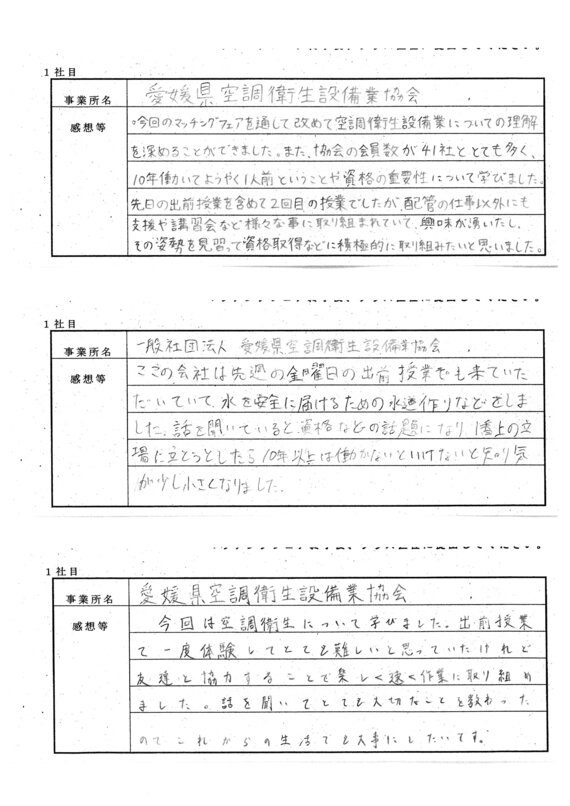 1社目
事業所名
愛媛県空調衛生設備業協会
感想等
今回のマッチングフェアを通して改めて空調衛生設備業についての理解
を深めることができました。また、協会の会員数が41社ととても多く、
10年働いてようやく1人前ということや資格の重要性について学びました。
先日の出前授業を含めて2回目の授業でしたが、配管の仕事以外にも
支援や講習会など様々な事に取り組まれていて、興味が湧いたし、
その姿勢を見習って資格取得などに積極的に取り組みたいと思いました。
1社目
事業所名
一般社団法人 愛媛県空調衛生設備業協会
感想等
ここの会社は先週の金曜日の出前授業でも来ていた
だいていて、水を安全に届けるための水道作りなどをしま
した。話を聞いていると、資格などの話題になり、1番上の立
場に立とうとしたら10年以上は働かないといけないと知り気
が少し小さくなりました。
1社目
事業所名
愛媛県空調衛生設備業協会
感想等
今回は空調衛生について学びました。出前授業
で一度体験してとても難しいと思っていたけれど
友達と協力することで楽しく速く作業に取り組め
ました。話を聞いてとても大切なことを教わった
のでこれからの生活でも大事にしたいです。